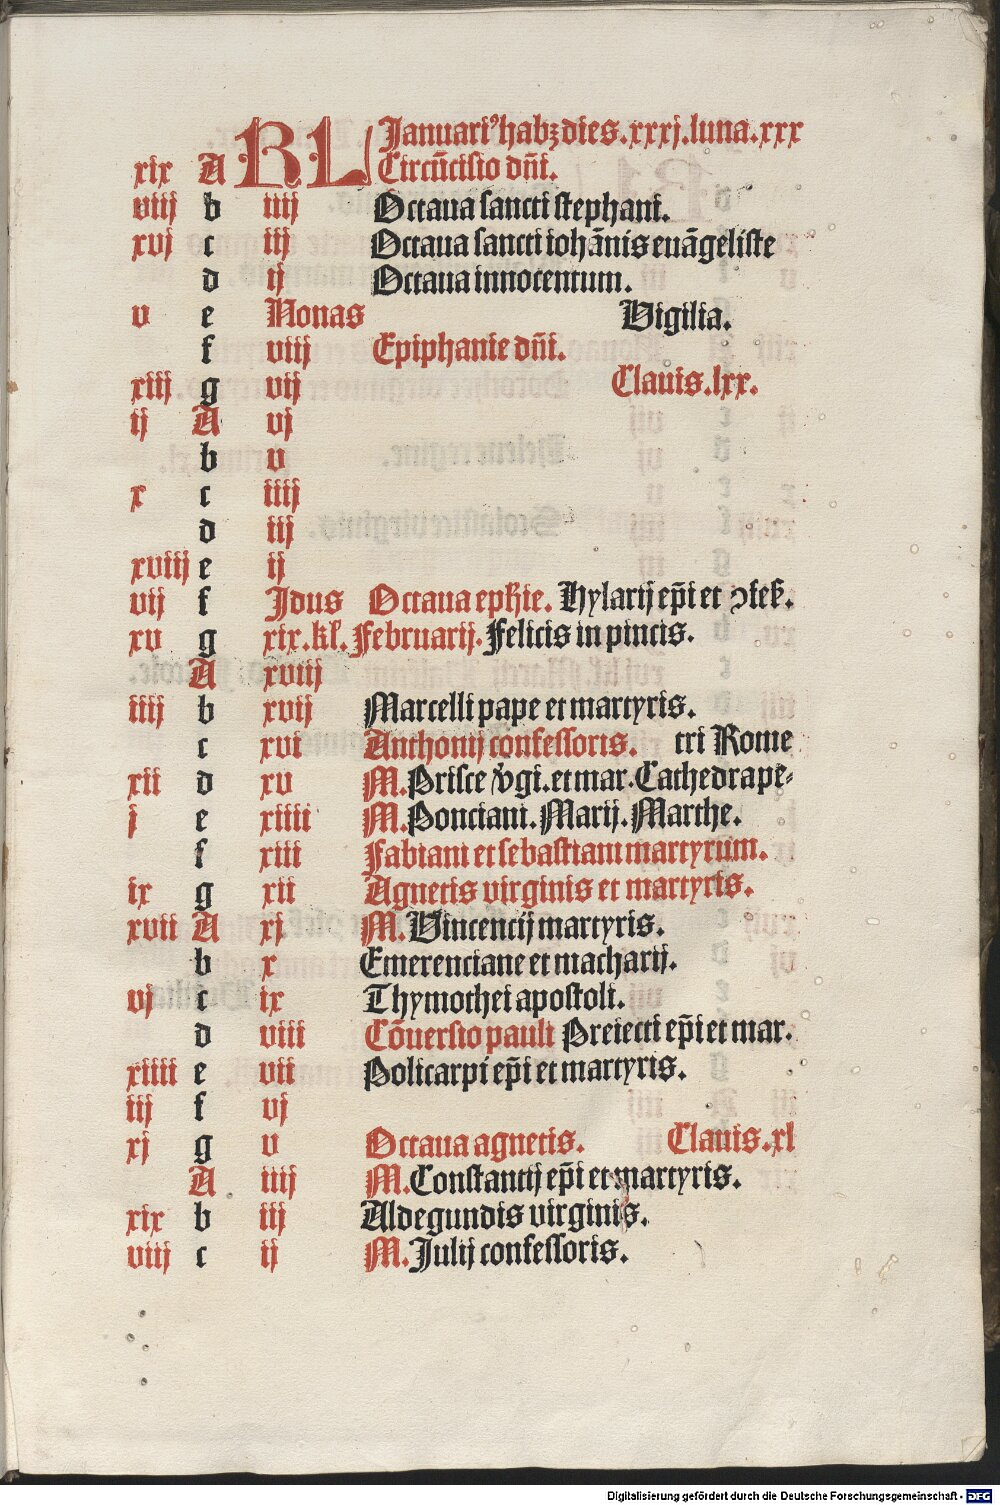 KL Januariꝰ habꝫ dies.xxxj.luna.xxx
xix A Circūcisio dn̄i.
viij b iiij Octaua sancti stephani.
xvj c iij Octaua sancti iohānis euāgeliste
d ij Octaua innocentum.
v e Nonas Vigilia.
f viij Epiphanie dn̄i.
xiij g vij Clauis.lxx.
ij A vj
b v
x c iiij
d iij
xviij e ij
vij f Jdus Octaua ephīe. Hylarij ep̄i et ↄfess.
xv g xix.kl. Februarij. Felicis in pincis.
A xviij
iiij b xvij Marcelli pape et martyris.
c xvi Anthonij confessoris. tri Rome
xii d xv M.Prisce v̄gi.et mar. Cathedra pe-
j e xiiii M.Ponciani. Marij. Marthe.
f xiii Fabiani et sebastiani martyrum.
ix g xii Agnetis virginis et martyris.
xvii A xj M.Vincencij martyris.
b x Emerenciane et macharij.
vj c ix Thymothei apostoli.
d viii Cōuersio pauli Preiecti ep̄i et mar.
xiiii e vii Policarpi ep̄i et martyris.
iij f vj
xj g v Octaua agnetis. Clauis.xl
A iiij M.Constantij ep̄i et martyris.
xix b iij Aldegundis virginis.
viij c ij M.Julij confessoris.
Digitalisierung gefördert durch die Deutsche Forschungsgemeinschaft - DFG